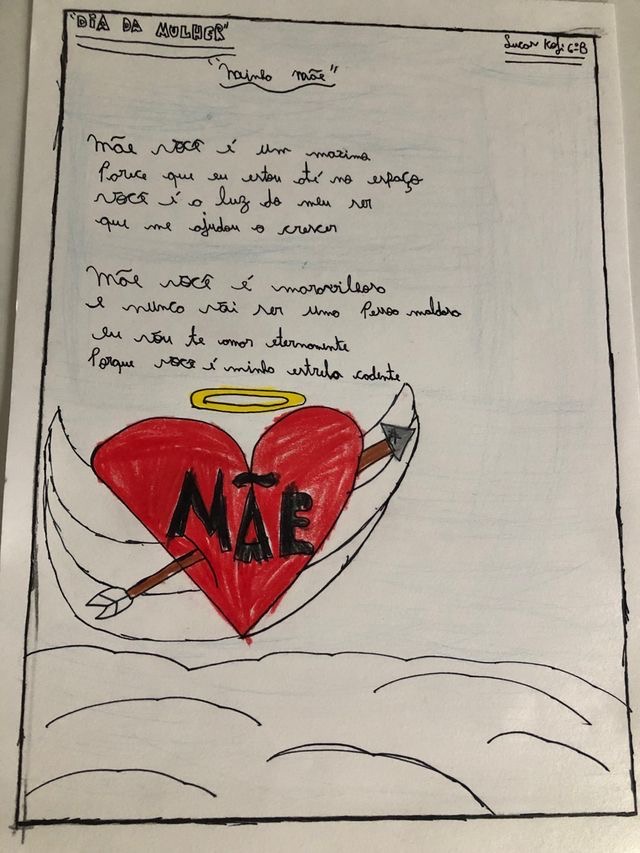 "DIA DA MULHER"
Lucas Koji 6ºB
"Minha mãe"
Mãe você é um maximo
Parece que eu estou até no espaço
você é a luz do meu ser
que me ajudou a crescer
Mãe você é maravilhosa
e nunca vai ser uma Pessoa maldosa
eu vou te amar eternamente
Porque você é minha estrela cadente
MÃE